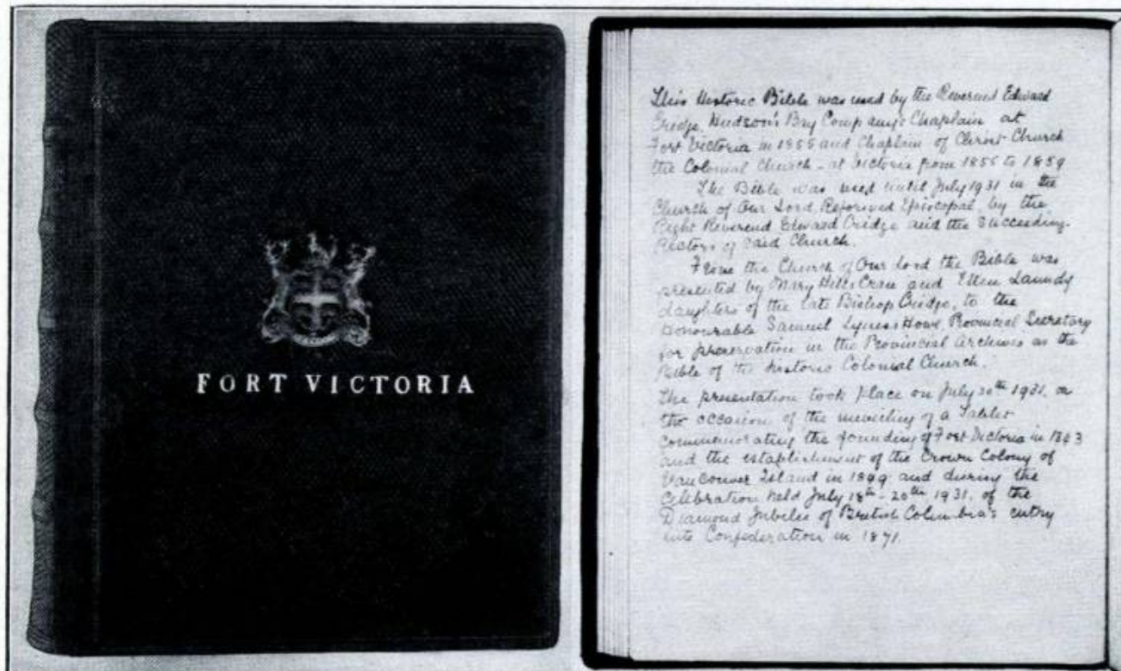 FORT VICTORIA
This Historic Bible was used by the Reverend Edward
Cridge, Hudson's Bay Company's Chaplain at
Fort Victoria in 1855 and Chaplain of Christ Church
the Colonial Church - at Victoria from 1855 to 1859
The Bible was used until July 1931 in the
Church of Our Lord, Reformed Episcopal, by the
Right Reverend Edward Cridge and the Succeeding
Rectors of said Church.
From the Church of Our Lord the Bible was
presented by Mary Hills Cran and Ellen Laundy
daughters of the late Bishop Cridge, to the
Honourable Samuel Lyness Howe, Provincial Secretary
for preservation in the Provincial Archives as the
Bible of the historic Colonial Church.
The presentation took place on July 20th 1931, on
the occasion of the unveiling of a Tablet
commemorating the founding of Fort Victoria in 1843
and the establishment of the Crown Colony of
Vancouver Island in 1849, and during the
Celebration held July 18th - 20th 1931, of the
Diamond Jubilee of British Columbia's entry
into Confederation in 1871.